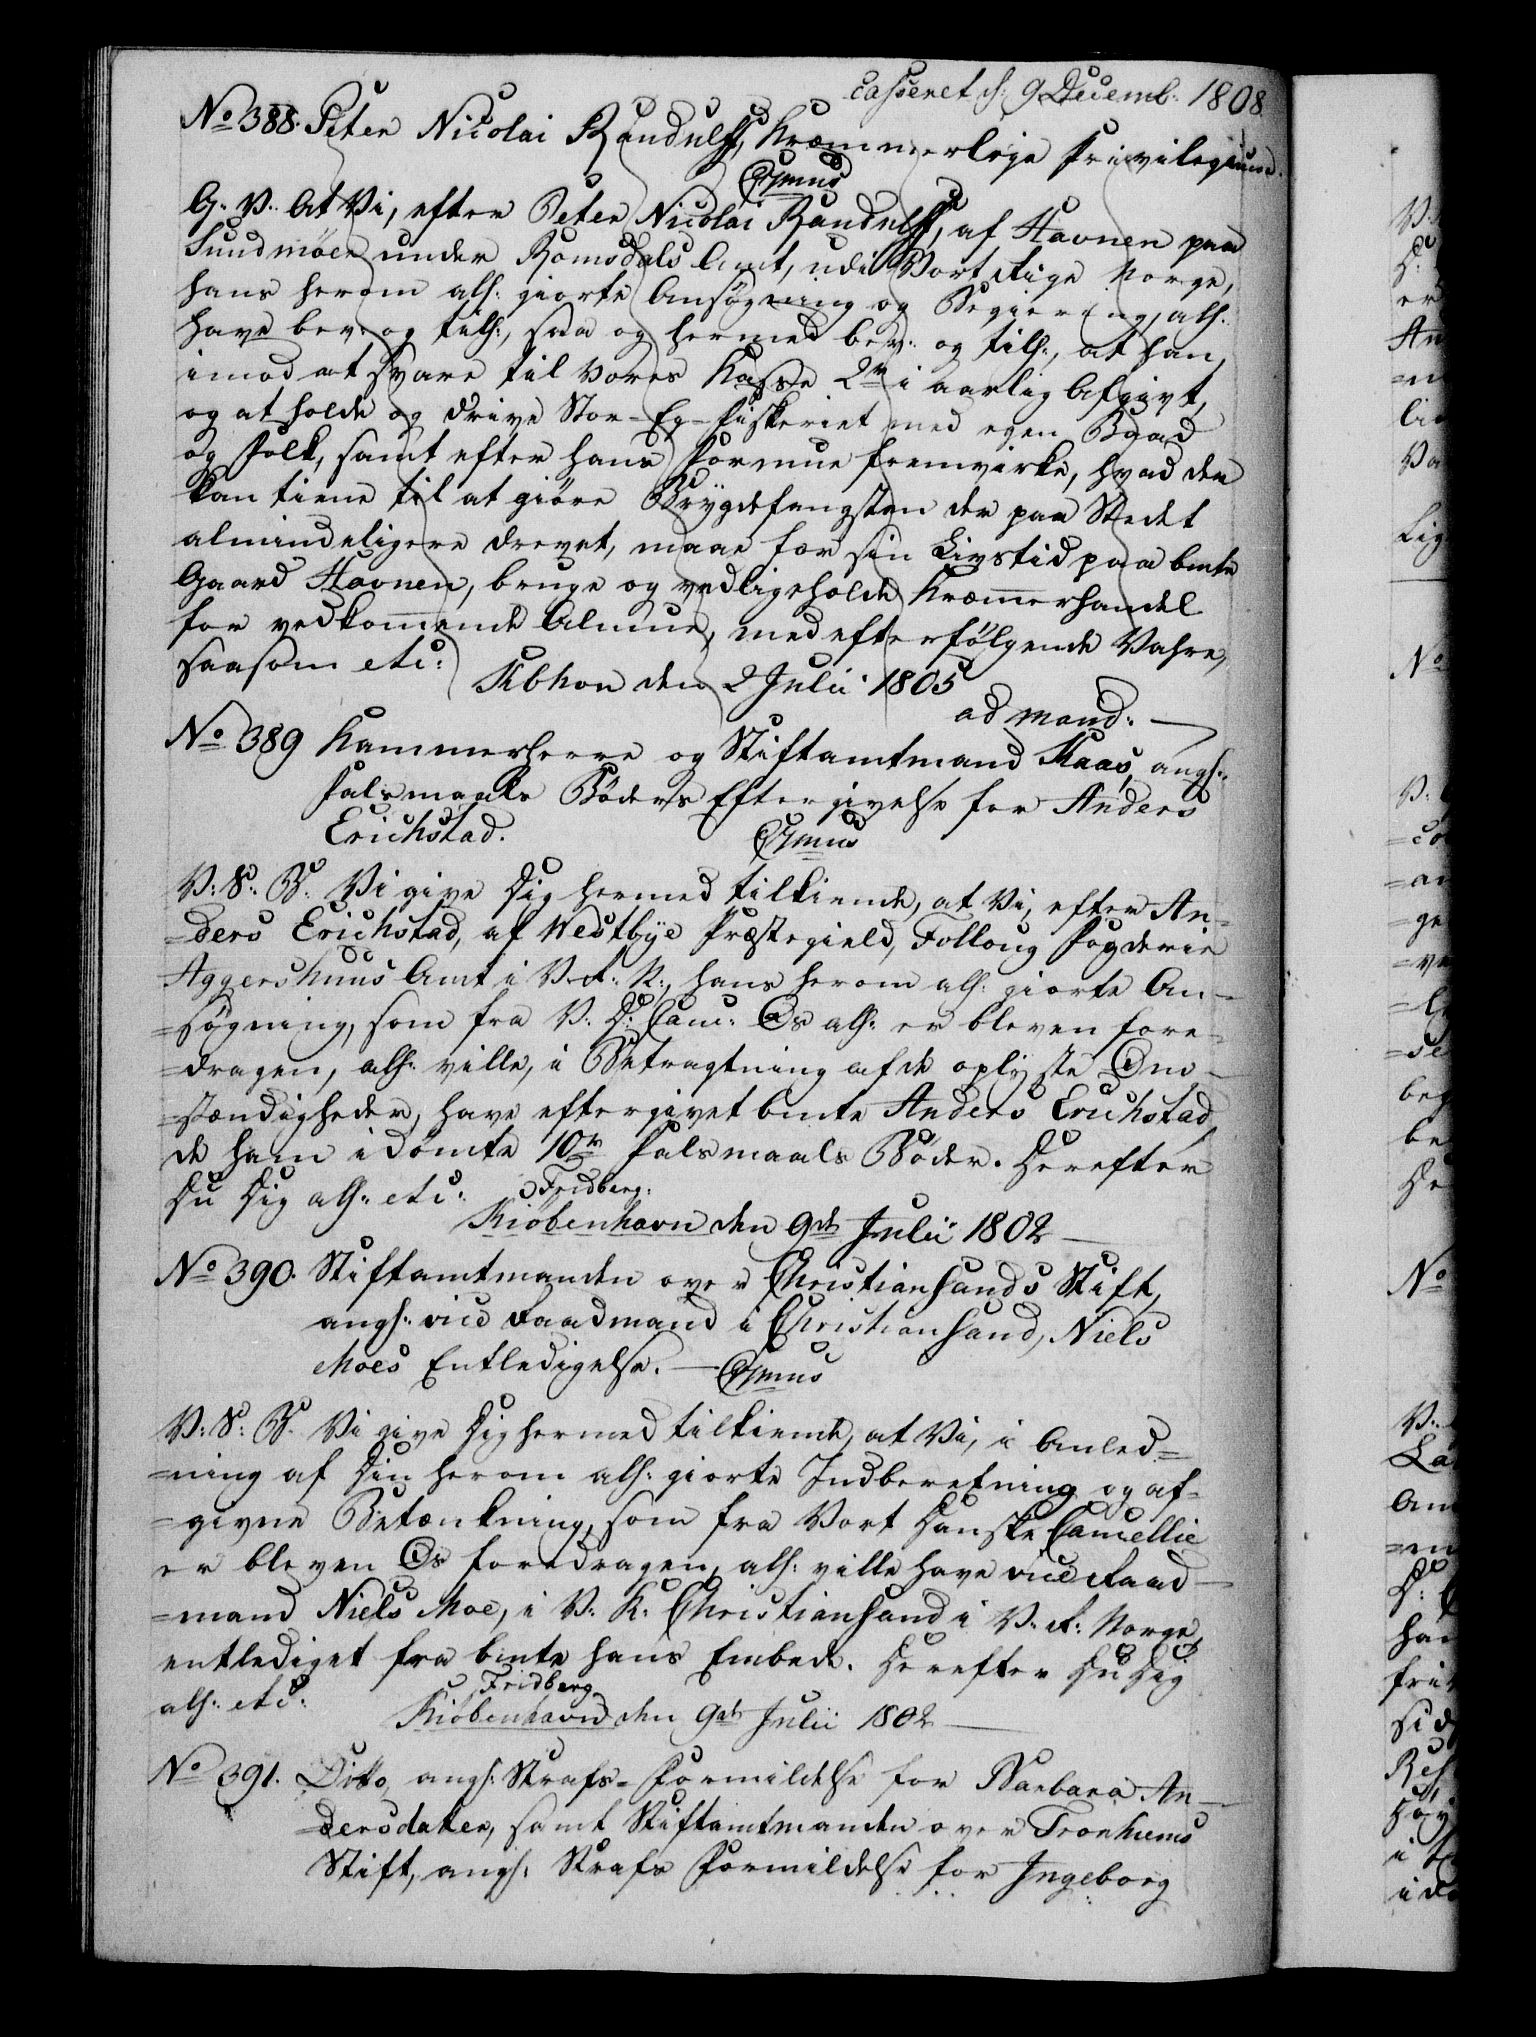 casseret d: 9 Decemb: 1808
No 388. Peter Nicolai Randulff, Kræmmerleje Privilegium.
Gmus
G. V. At Vi, efter Peter Nicolai Randulff, af Havnen paa
Sundmöer under Romsdals Amt, udi Vort Rige Norge,
hans herom allh: giorte Ansøgning og Begiering, allh:
have bev: og tilh:, saa og hermed bev: og tilh:, at han,
imod at svare til Vores Kasse 2 rd i aarlig Afgivt,
og at holde og drive Stor-Eg-fiskeriet med egen Baad
og Folk, samt efter hans Formue fremvirke, hvad der
kan tiene til at giøre Brygdefangsten der paa Stedet
almindeligere drevet, maae for sin Livstid paa bmte
Gaard Havnen, bruge og vedligeholde Kræmerhandel
for vedkommende Almue, med efterfølgende Vahre,
saasom etc:
Kbhvn den 2 Julii 1805
ad mand: —
No 389 Kammerherre og Stiftamtmand Kaas, angh:
Falsmaals Bøders Eftergivelse for Anders
Erichstad.
Gmus
V: S: B. Vi give Dig hermed tilkiende, at Vi, efter An-
=ders Erichstad, af Westbye Præstegield, Folloug Fogderie
Aggershuus Amt i V. R. N., hans herom allh: giorte An-
=søgning, som fra V. D. Canc: Os allh: er bleven fore-
=dragen, allh: ville, i Betragtning af de oplyste Om-
=stændigheder, have eftergivet bmte Anders Erichstad
de ham idømte 10 rd Falsmaals Bøder. Derefter
Du Dig allh: etc:
Fridberg.
Kiøbenhavn den 9de Julii 1802 —
No 390. Stiftamtmanden over Christiansands Stift,
angh: vice Raadmand i Christiansand, Niels
Moes Entledigelse. — Gmus
V: S: B. Vi give Dig hermed tilkiende, at Vi, i Anled=
=ning af Din herom allh: giorte Indberetning og af-
=givne Betænkning, som fra Vort Danske Cancellie
er bleven Os foredragen, allh: ville have vice Raad-
=mand Niels Moe, i V. K. Christiansand i V. R. Norge,
entlediget fra bmte hans Embede. Derefter Du Dig
allh: etc:
Fridberg
Kiøbenhavn den 9de Julii 1802 —
No 391. Ditto, angh: Strafs-Formildelse for Barbara An-
=dersdater, samt Stiftamtmanden over Tronhiems
Stift, angh: Strafs Formildelse for Ingeborg